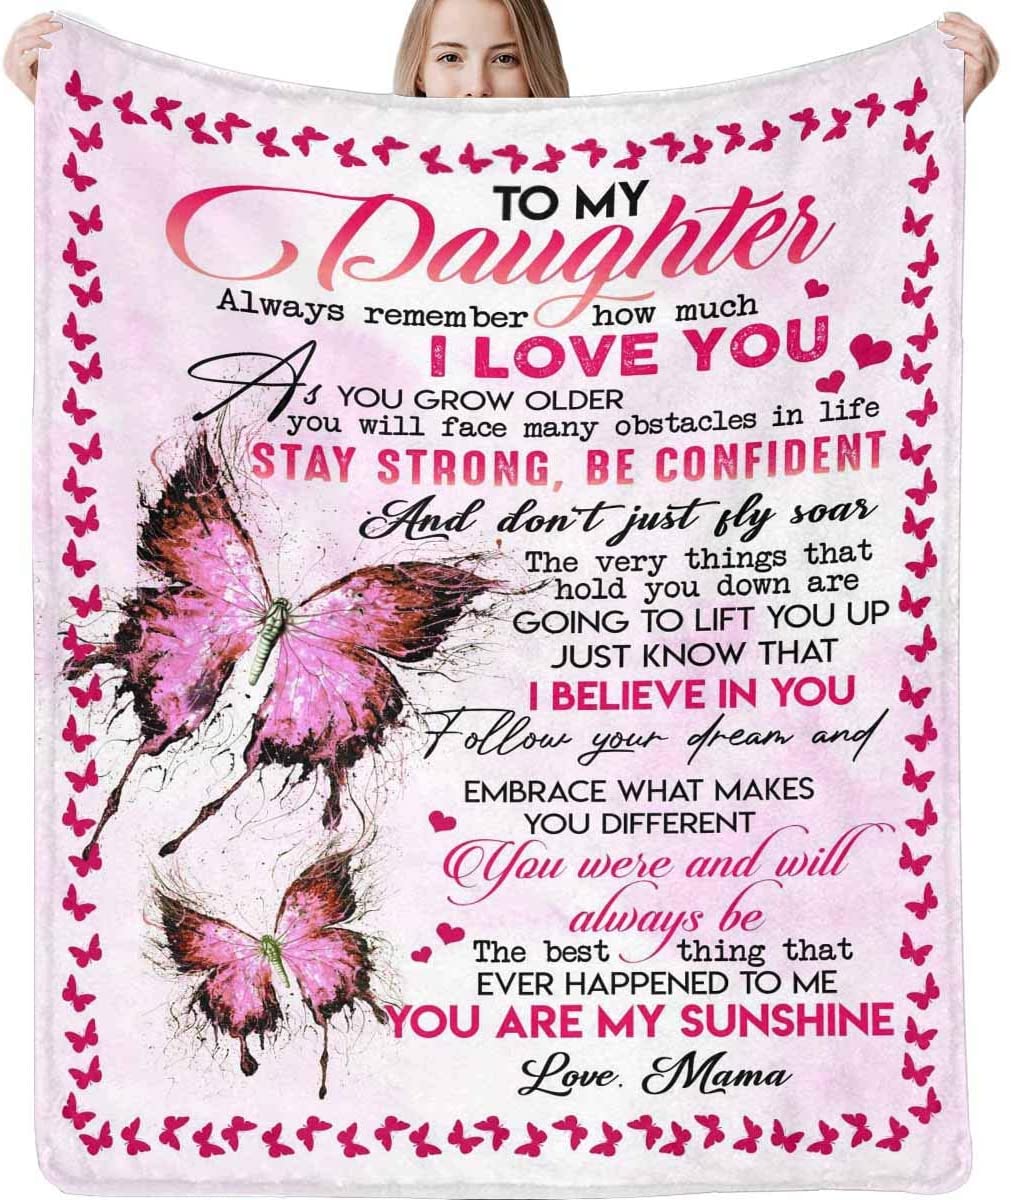 TO MY
Daughter
Always remember how much
I LOVE YOU
As YOU GROW OLDER
you will face many obstacles in life
STAY STRONG, BE CONFIDENT
And don't just fly soar
The very things that
hold you down are
GOING TO LIFT YOU UP
JUST KNOW THAT
I BELIEVE IN YOU
Follow your dream and
EMBRACE WHAT MAKES
YOU DIFFERENT
You were and will
always be
The best thing that
EVER HAPPENED TO ME
YOU ARE MY SUNSHINE
Love. Mama